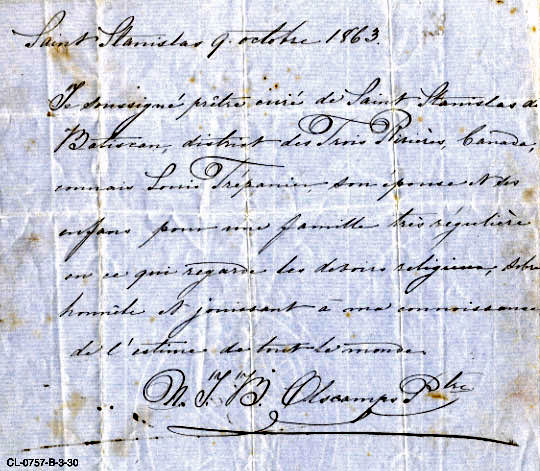 Saint Stanislas 9 octobre 1863.
Je soussigné prêtre curé de Saint Stanislas de
Batiscan, district des Trois Rivières, Canada,
connais Louis Trépanier, son epouse et ses
enfans pour une famille très régulière
en ce qui regarde les devoirs religieux, sobre
honnête et jouissant à ma connaissance
de l'estime de tout le monde.
N. J. B. Olscamps Ptre
CL-0757-B-3-30